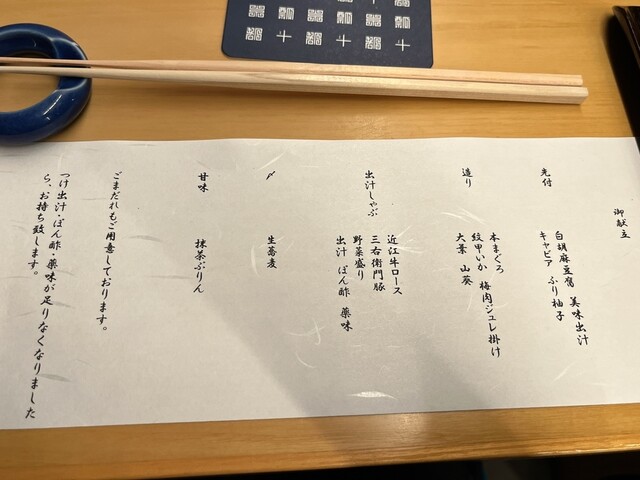 御献立
先付
白胡麻豆腐 美味出汁
キャビア ふり柚子
造り
本まぐろ
紋甲いか 梅肉ジュレ掛け
大葉 山葵
出汁しゃぶ
近江牛ロース
三右衛門豚
野菜盛り
出汁 ぽん酢 薬味
〆
生蕎麦
甘味
抹茶ぷりん
ごまだれもご用意しております。
つけ出汁・ぽん酢・薬味が足りなくなりました
ら、お持ち致します。